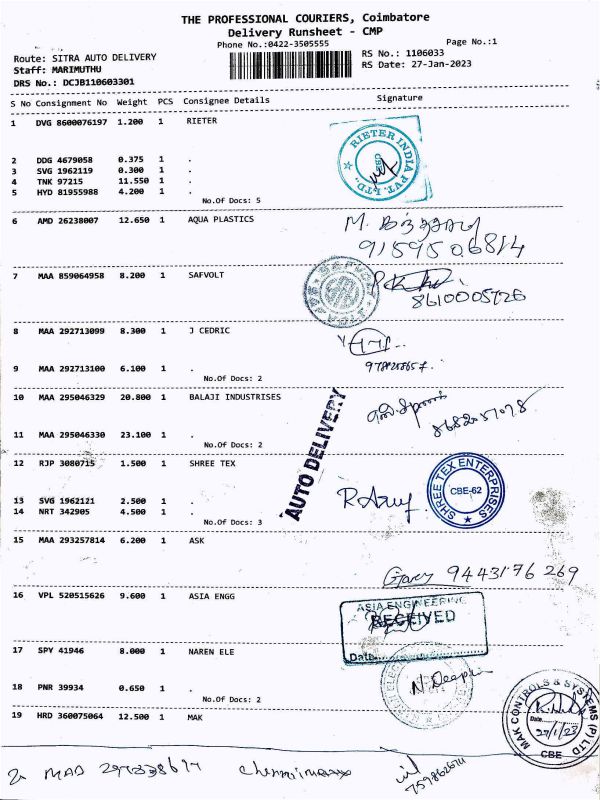 THE PROFESSIONAL COURIERS, Coimbatore
Delivery Runsheet - CMP
Phone No.:0422-3505555
Page No.:1
Route: SITRA AUTO DELIVERY
RS No.: 1106033
Staff: MARIMUTHU
RS Date: 27-Jan-2023
DRS No.: DCJB110603301
S No Consignment No Weight PCS Consignee Details Signature
1 DVG 8600076197 1.200 1 RIETER
RIETER INDIA PVT. LTD.
2 DDG 4679058 0.375 1 .
3 SVG 1962119 0.300 1 .
4 TNK 97215 11.550 1 .
5 HYD 81955988 4.200 1 .
No.Of Docs: 5
6 AMD 26238007 12.650 1 AQUA PLASTICS
9159506814
7 MAA 859064958 8.200 1 SAFVOLT
SAFVOLT
8610005726
8 MAA 292713099 8.300 1 J CEDRIC
9 MAA 292713100 6.100 1 .
No.Of Docs: 2
10 MAA 295046329 20.800 1 BALAJI INDUSTRISES
AUTO DELIVERY
11 MAA 295046330 23.100 1 .
No.Of Docs: 2
12 RJP 3080715 1.500 1 SHREE TEX
SHREE TEX ENTERPRISES
CBE-62
13 SVG 1962121 2.500 1 .
14 NRT 342905 4.500 1 .
No.Of Docs: 3
15 MAA 293257814 6.200 1 ASK
9443176269
16 VPL 520515626 9.600 1 ASIA ENGG
ASIA ENGINEERING
RECEIVED
Date
17 SPY 41946 8.000 1 NAREN ELE
N. Deepa
18 PNR 39934 0.650 1 .
No.Of Docs: 2
19 HRD 360075064 12.500 1 MAK
MAK CONTROLS & SYSTEMS (P) LTD
Date
27/1/23
CBE